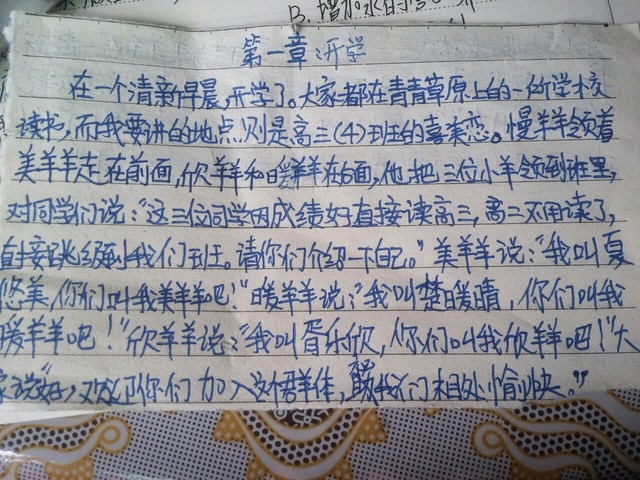 B. 增加水的
第一章:开学
在一个清新早晨,开学了。大家都在青青草原上的一所学校
读书,而我要讲的地点则是高三(4)班的喜美恋。慢羊羊领着
美羊羊走在前面,欣羊羊和暖羊羊在后面,他把三位小羊领到班里,
对同学们说:“这三位同学因成绩好直接读高三,高二不用读了,
直接跳级到我们班。请你们介绍一下自己。”美羊羊说:“我叫夏
悠美,你们叫我美羊羊吧!”暖羊羊说:“我叫楚暖晴,你们叫我
暖羊羊吧!”欣羊羊说:“我叫胥乐欣,你们叫我欣羊羊吧!”大
家说“好,欢迎你们加入这个群体,我们相处愉快。”